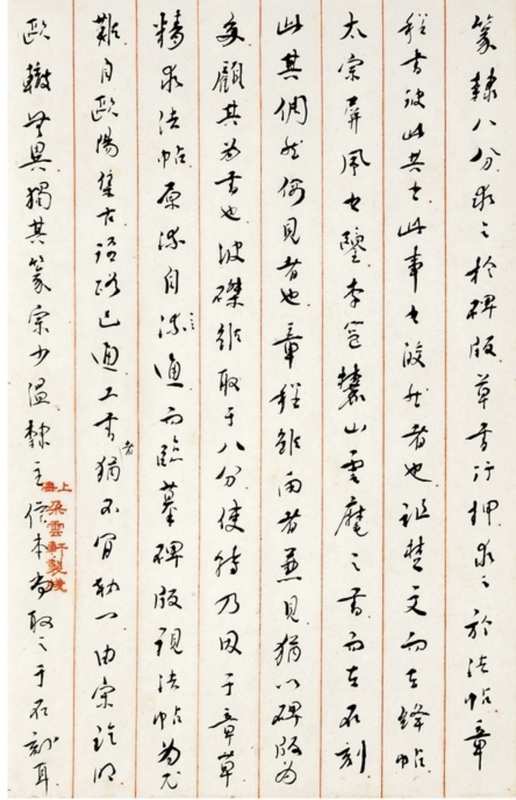 篆隸八分求之於碑版草書行押求之於法帖章
程書彼此共之此事之皎然者也詛楚文而在絳帖
太宗屏風之鑒李邕麓山雲麾之書而在石刻
此其倜然例見者也章程雖兩者並見猶以碑版為
多顧其為書也波磔雖取于八分使轉乃因于章草
精求法帖原流自流通而臨摹碑版視法帖為尤
難自歐陽集古語踪已通工書者猶不間勒一由宋訖明
歐轍無異獨其篆宗少溫隸主僅本為取之于石刻耳
上海
朵雲軒製箋